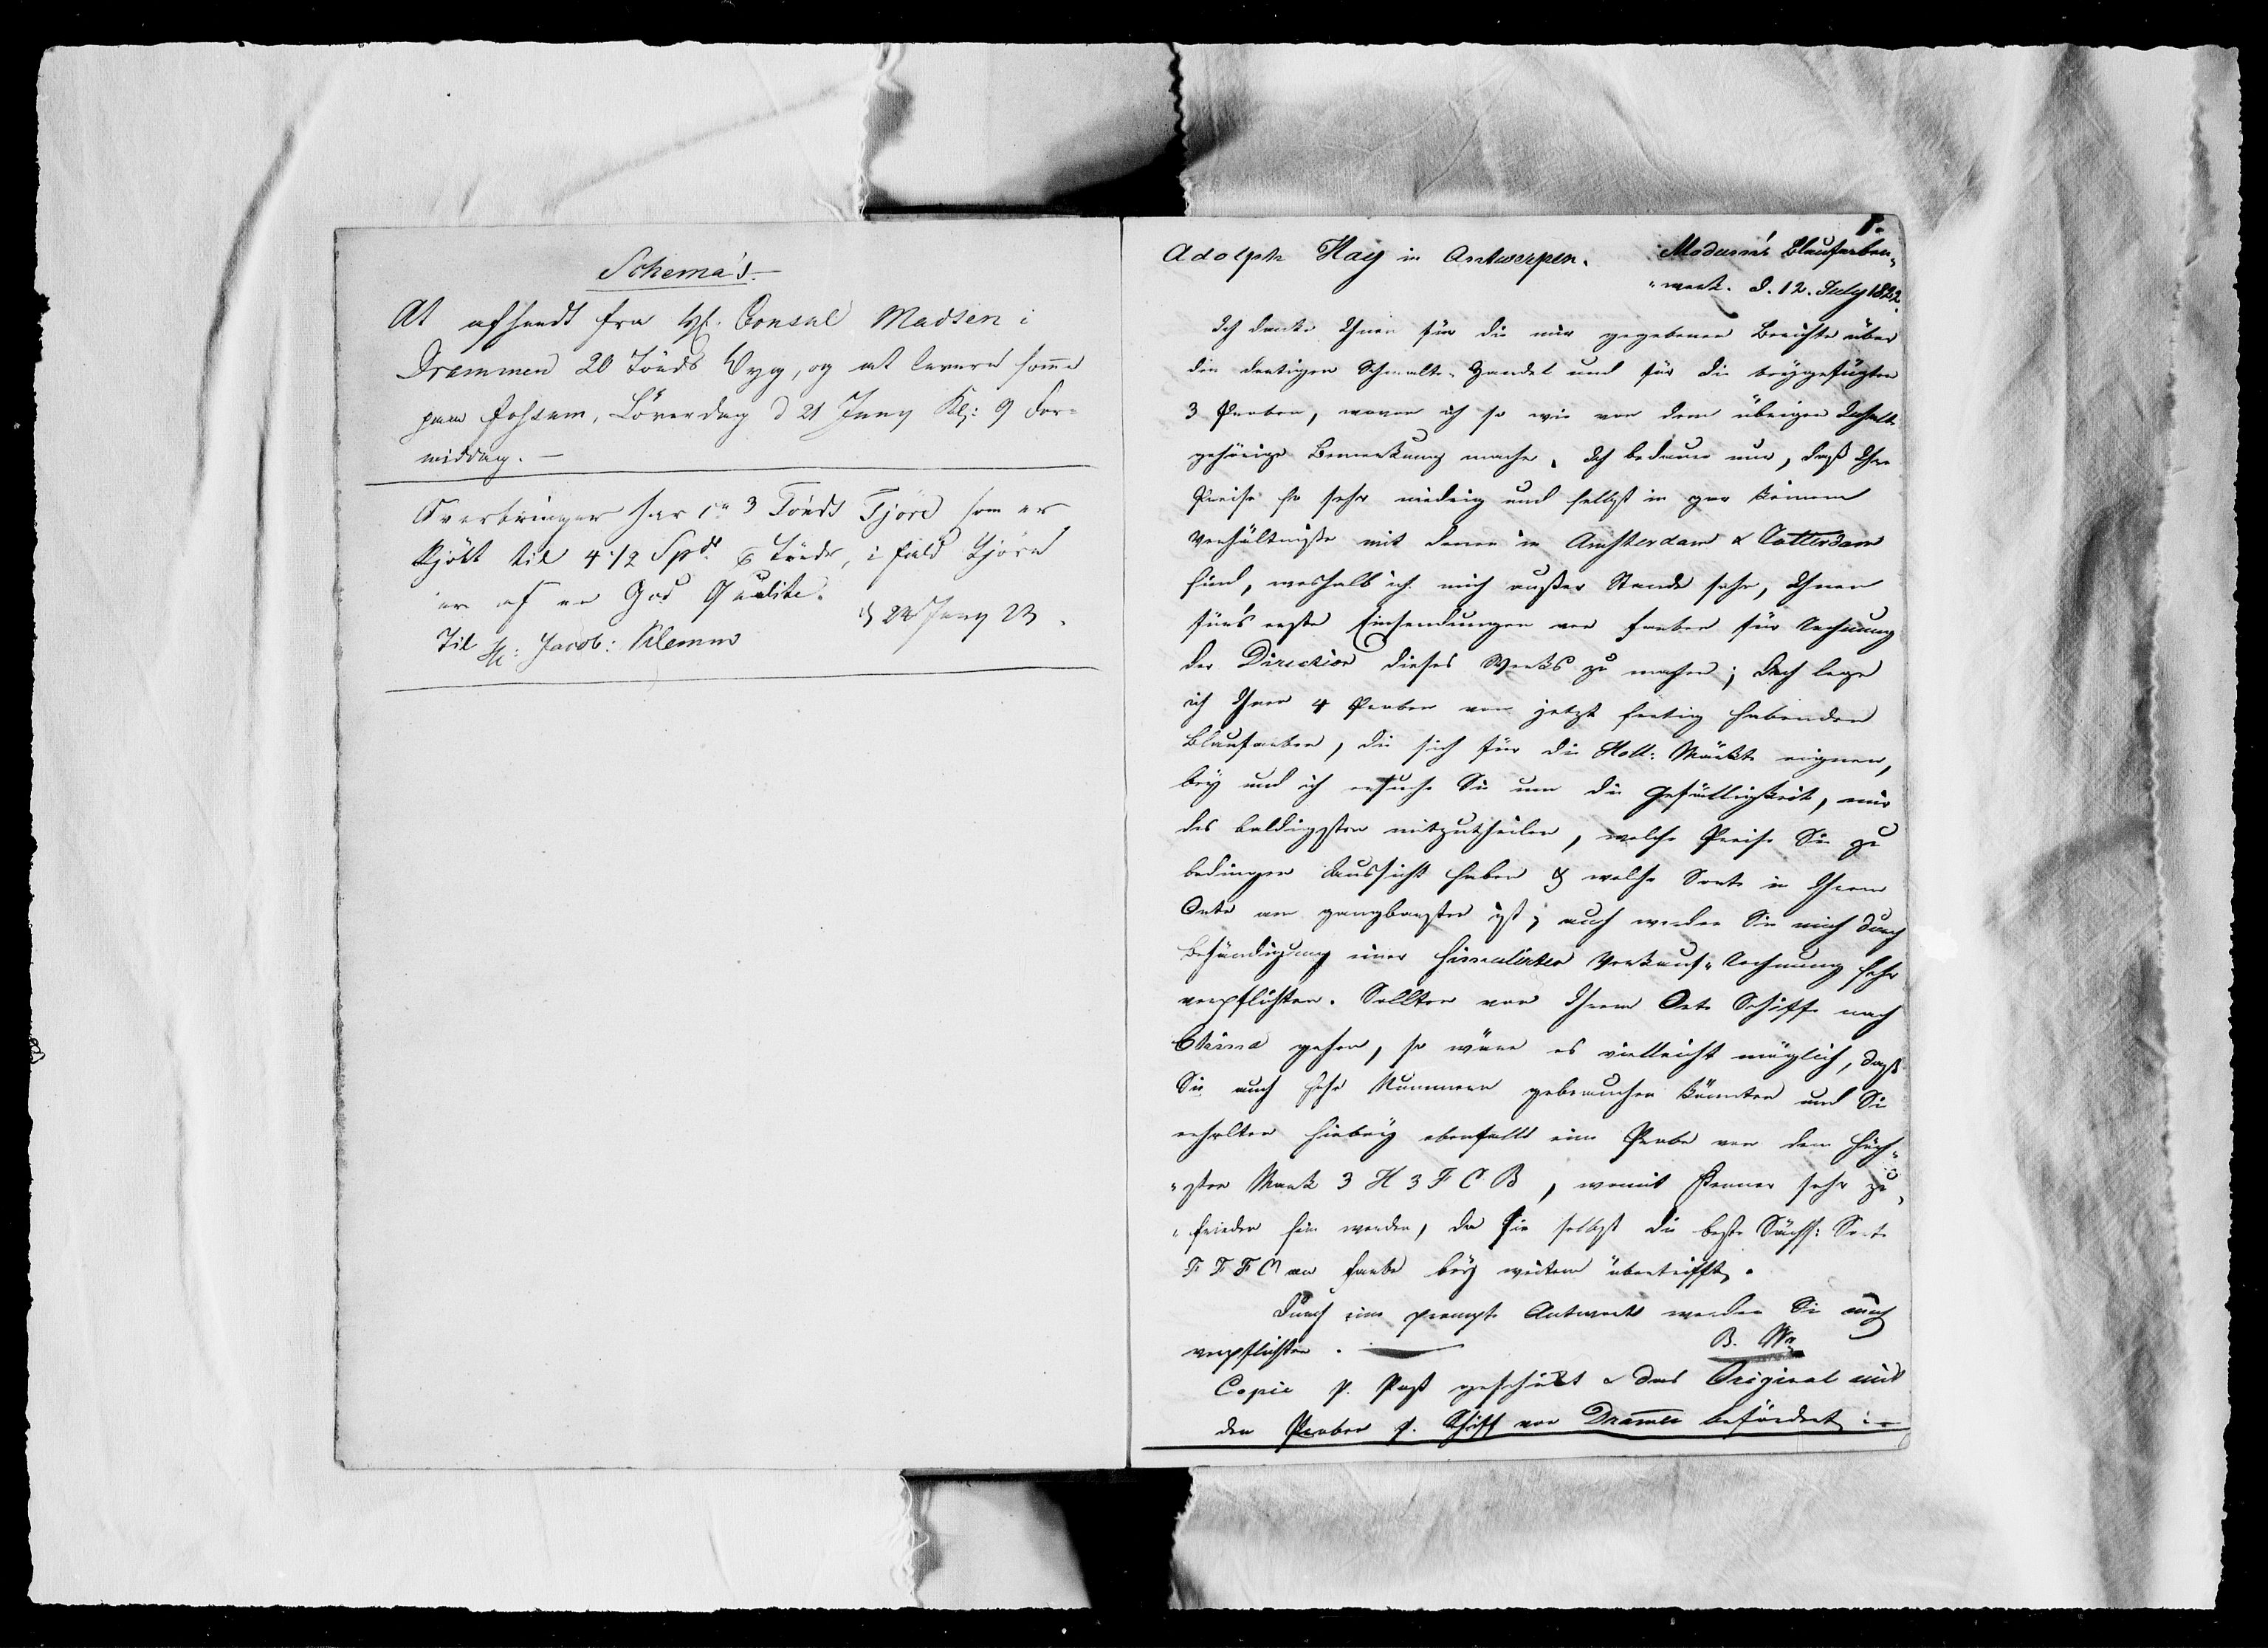 Schema's.—
At afhendt fra H. Consul Madsen i
Drammen 20 Tönds Byg, og at levere samme
paa Fossum, Löverdag d 21 Juny Kl: 9 For-
middag.—
Overbringer har 3 Tönds Tjöre som er
kjöbt til 4 1/2 Spd. Tönde, i fald Tjören
er af en God Qualite.
d 22 Juny 23.
Til H: Jacob: Klemm
1.
Adolph Hay in Antwerpen. Modum's Blaufarben-
"werk. d. 12. July 1822.
Ich danke Ihnen für die mir gegebenen Berichte über
den dortigen Schmalte-Handel und für die beygefügten
3 Proben, wovon ich so wie von dem übrigen Inhalte
gehörige Bemerkung mache. Ich bedaure nur, daß Ihre
Preise so sehr niedrig und selbst in gar keinem
Verhältnisse mit denen in Amsterdam & Rotterdam
sind, weshalb ich mich außer Stande sehe, Ihnen
für's erste Einsendungen von Farben für Rechnung
der Direction dieses Werks zu machen; doch lege
ich Ihnen 4 Proben von jetzt fertig habenden
Blaufarben, die sich für die Holl: Märkte eignen,
bey und ich ersuche Sie um die Gefälligkeit, mir
des baldigsten mitzutheilen, welche Preise Sie zu
bedingen Aussicht haben & welche Sorte in Ihrem
Orte am gangbarsten ist; auch werden Sie mich durch
Behändigung einer simulirten Verkauf-Rechnung sehr
verpflichten. Sollten von Ihrem Orte Schiffe nach
China gehen, so wäre es vielleicht möglich, daß
Sie auch hohe Nummern gebrauchen könnten und Sie
erhalten hiebey ebenfalls eine Probe von dem höch-
"sten Mark 3 H 3 F C B, womit Kenner sehr zu-
"frieden sein werden, da sie selbst die beste Sächs: Sorte
F F F C an Farbe bey weitem übertrifft.
Durch eine prompte Antwort werden Sie mich
verpflichten. B. W.
Copie p. Post geschickt & das Original mit
den Proben p. Schiff von Dramen befördert.—